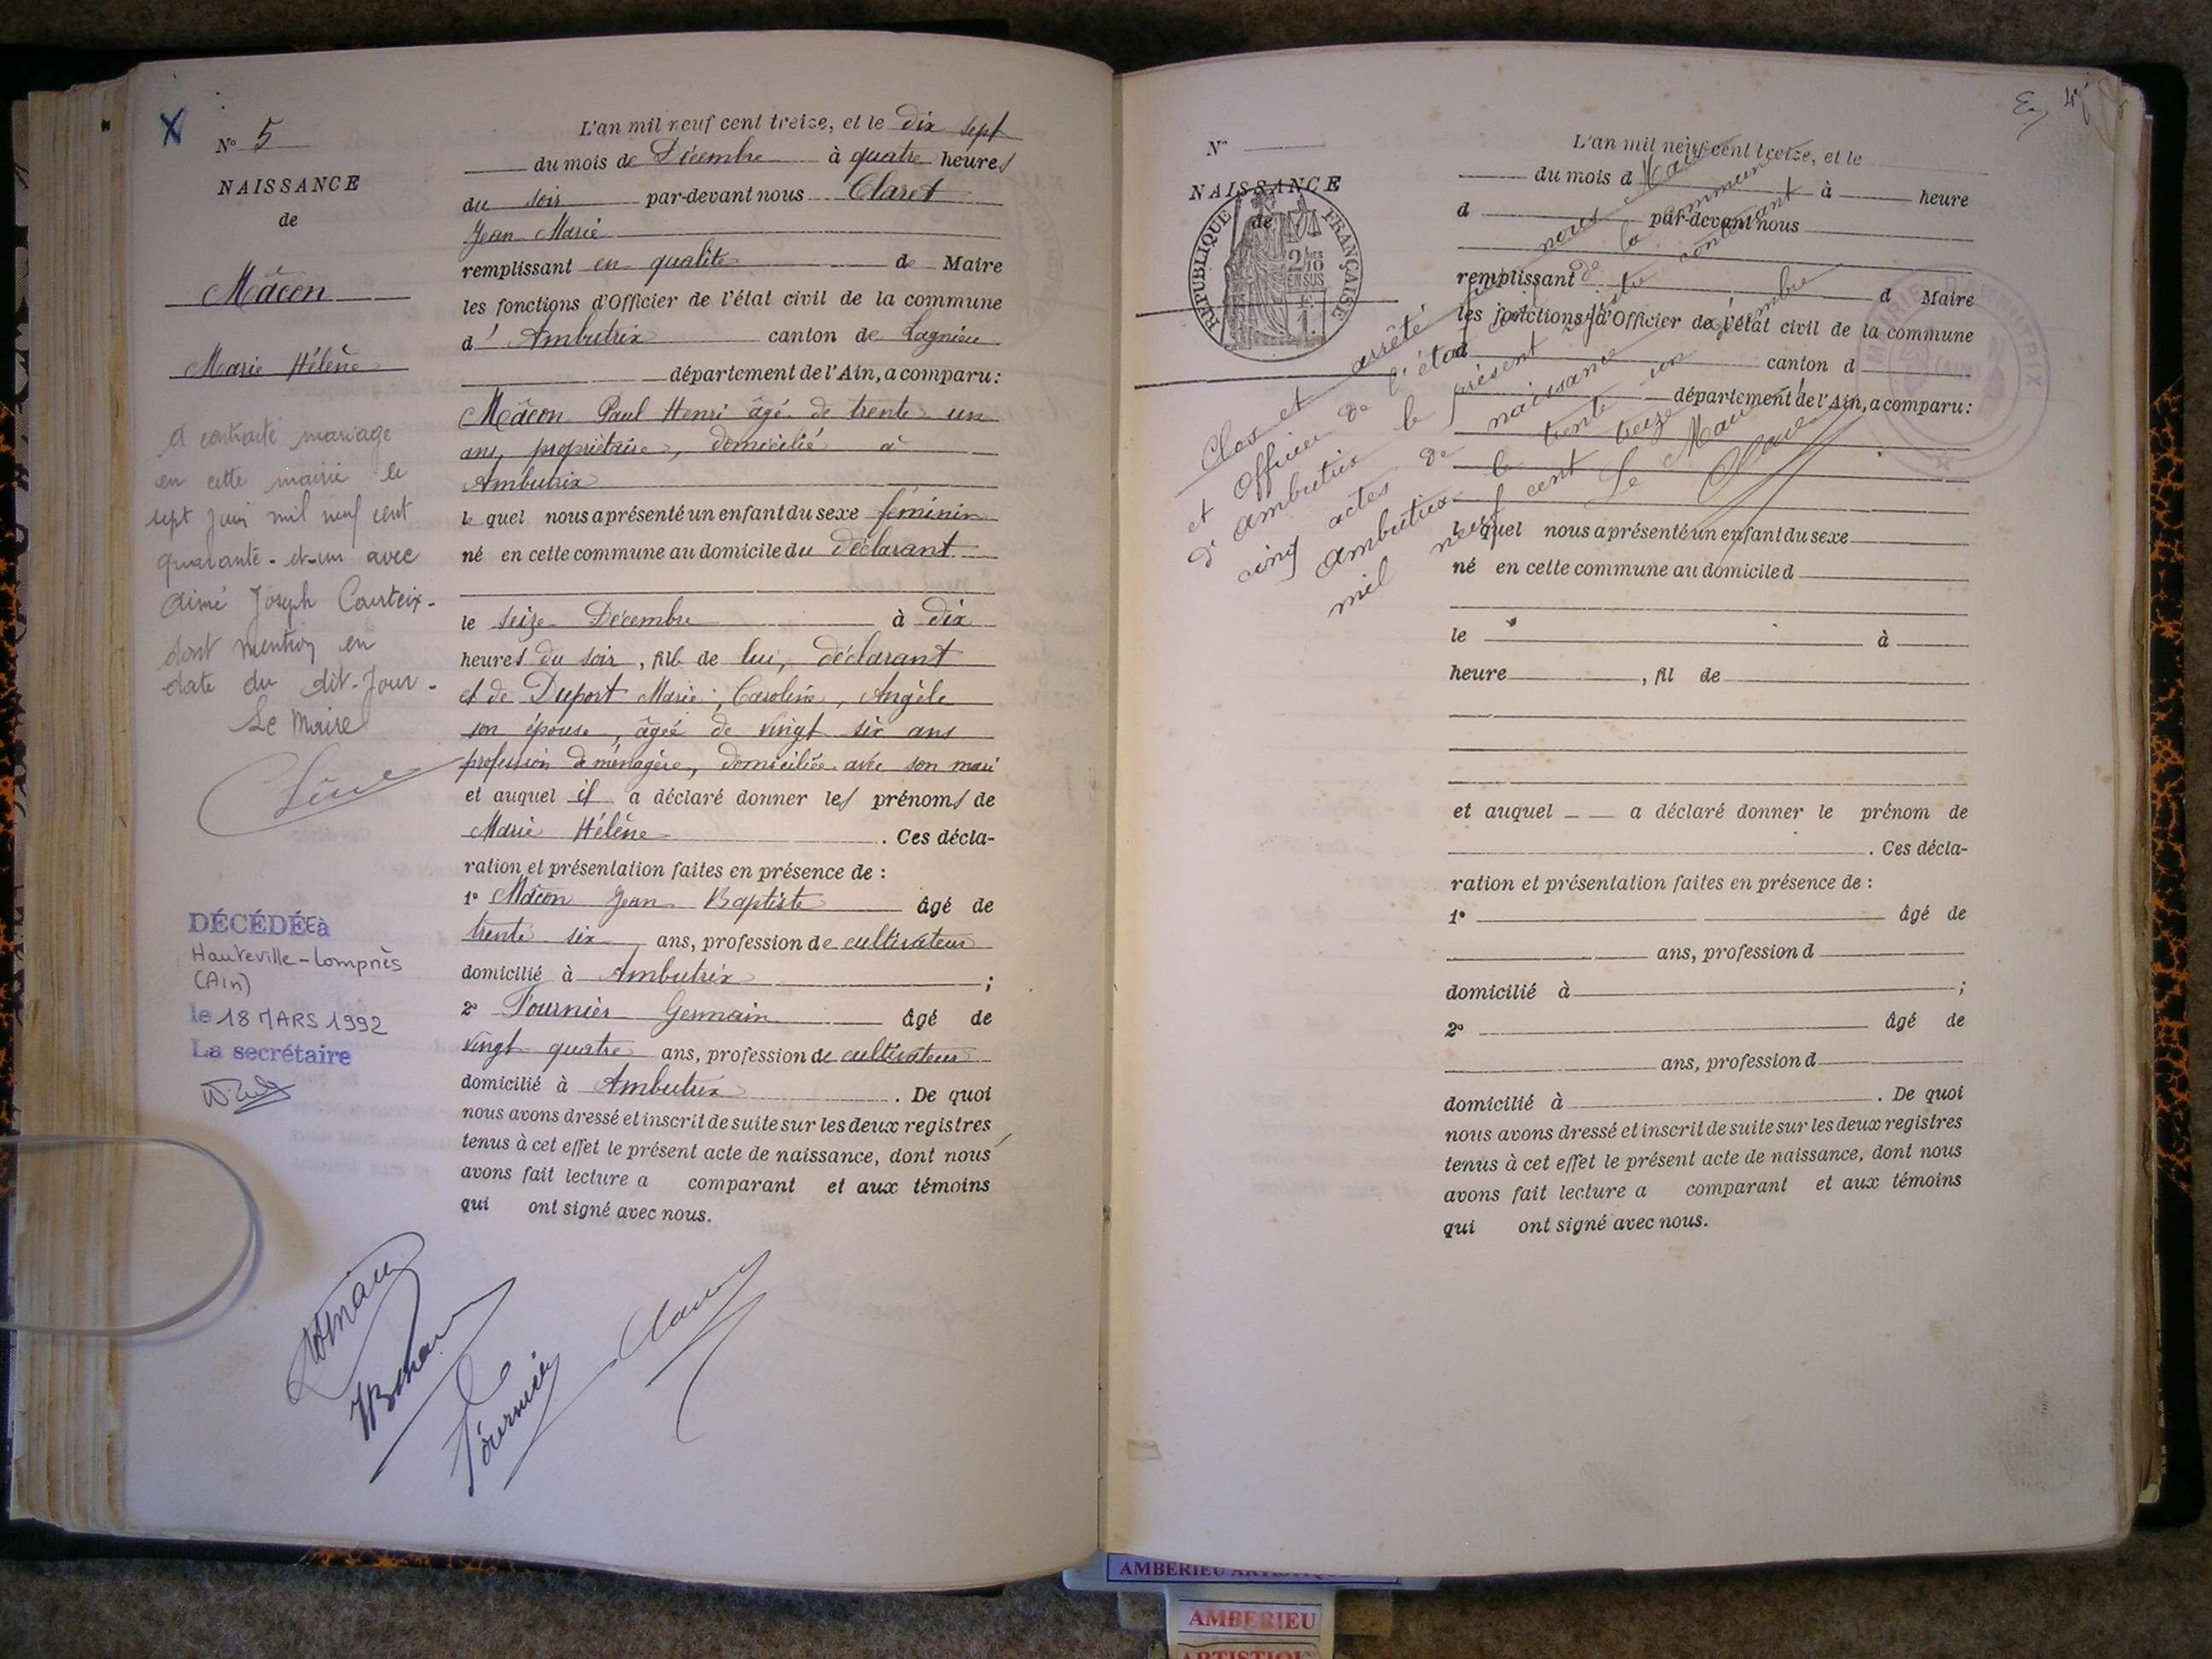 N° 5
NAISSANCE
de
Mâcon
Marie Hélène
a contracté mariage
en cette mairie le
sept juin mil neuf cent
quarante-et-un avec
Aimé Joseph Courteix-
dont mention en
date du dit-Jour-
Le Maire
DÉCÉDÉE à
Hauteville-Lompnès
(Ain)
le 18 MARS 1992
La secrétaire
L'an mil neuf cent treize, et le dix sept
du mois de Décembre à quatre heures
du soir par-devant nous Claret
Jean Marie
remplissant en qualité de Maire
les fonctions d'Officier de l'état civil de la commune
d'Ambutrix canton de Lagnieu
département de l'Ain, a comparu:
Mâcon Paul Henri âgé de trente un
ans, propriétaire, domicilié à
Ambutrix
le quel nous a présenté un enfant du sexe féminin
né en cette commune au domicile du déclarant
le seize Décembre à dix
heures du soir, fill de lui, déclarant
et de Duport Marie, Caroline, Angèle
son épouse, âgée de vingt six ans
profession de ménagère, domiciliée avec son mari
et auquel il a déclaré donner les prénoms de
Marie Hélène. Ces décla-
ration et présentation faites en présence de :
1° Mâcon Jean Baptiste âgé de
trente six ans, profession de cultivateur
domicilié à Ambutrix ;
2° Fournier Germain âgé de
vingt quatre ans, profession de cultivateur
domicilié à Ambutrix. De quoi
nous avons dressé et inscrit de suite sur les deux registres
tenus à cet effet le présent acte de naissance, dont nous
avons fait lecture a comparant et aux témoins
qui ont signé avec nous.
Fournier
N°
NAISSANCE
de
RÉPUBLIQUE FRANÇAISE
2/10
EN SUS
F.
1.
L'an mil neuf cent treize, et le
du mois d à heure
d par-devant nous
remplissant d Maire
les fonctions d'Officier de l'état civil de la commune
d canton d
département de l'Ain, a comparu:
l quel nous a présenté un enfant du sexe
né en cette commune au domicile d
le à
heure , fil de
et auquel a déclaré donner le prénom de
. Ces décla-
ration et présentation faites en présence de :
1° âgé de
ans, profession d
domicilié à ;
2° âgé de
ans, profession d
domicilié à . De quoi
nous avons dressé et inscrit de suite sur les deux registres
tenus à cet effet le présent acte de naissance, dont nous
avons fait lecture a comparant et aux témoins
qui ont signé avec nous.
Clos et arrêté par nous Maire
et Officier de l'état civil de la commune
d'Ambutrix le présent registre contenant
cinq actes de naissance
Ambutrix le trente un Décembre
mil neuf cent treize
Le Maire
AMBERIEU ARTISTIQUE
AMBERIEU
ARTISTIQU